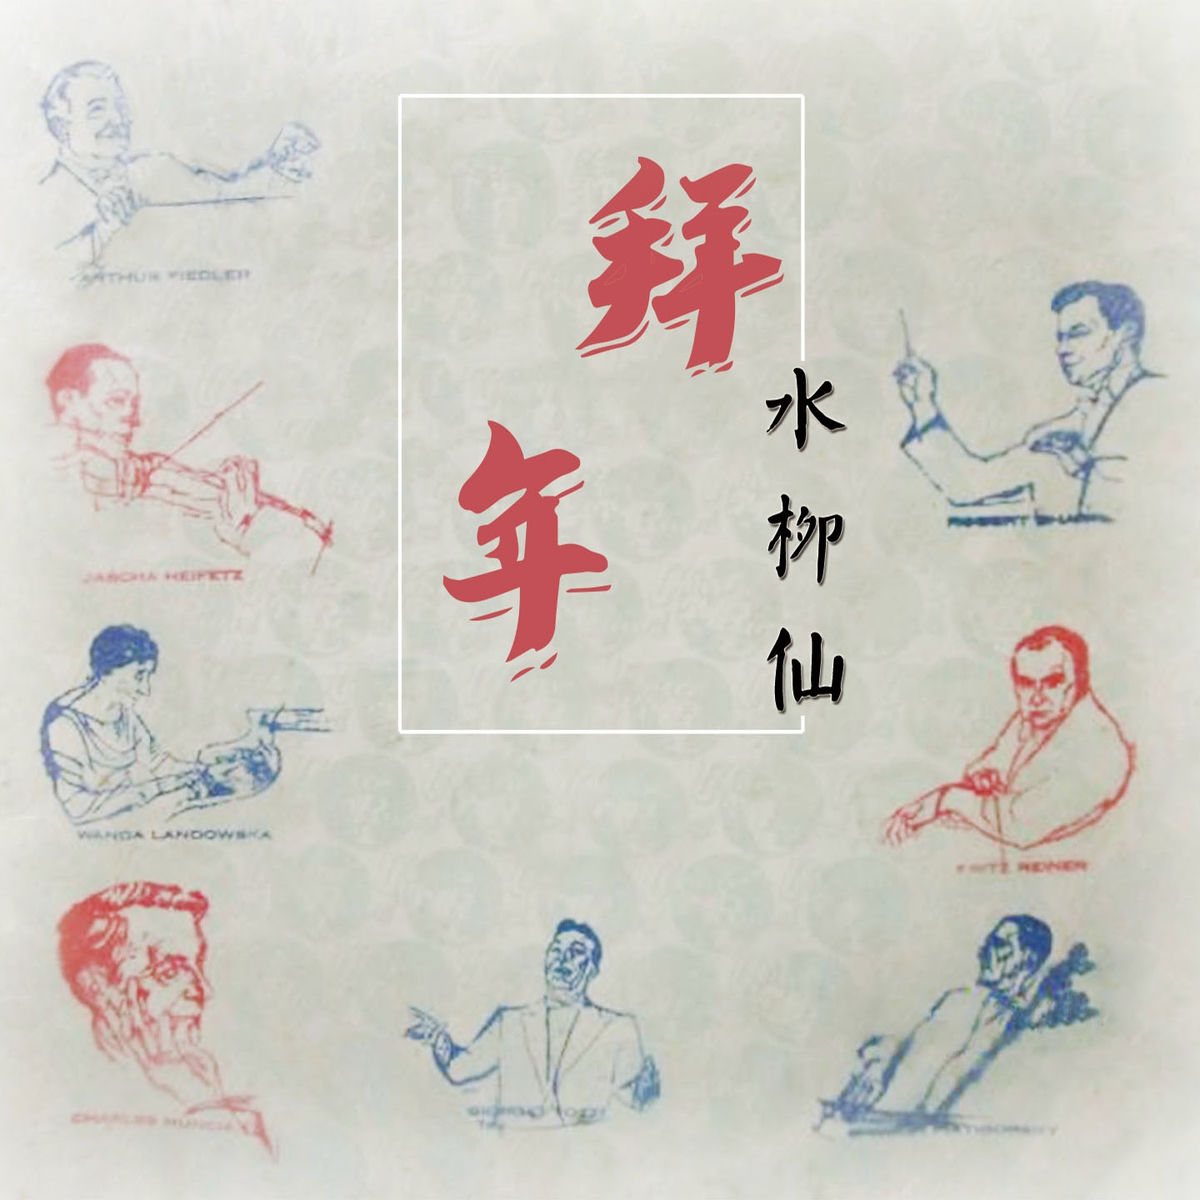 拜年
水柳仙
ARTHUR FIEDLER
JASCHA HEIFETZ
WANDA LANDOWSKA
CHARLES MUNCH
GIORGIO TOZZI
ROBERT SHAW
FRITZ REINER